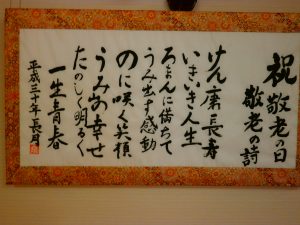 祝 敬老の日
敬老の詩
けん康長寿
いきいき人生
ろまんに満ちて
うみ出す感動
のに咲く笑顔
うみの幸せ
たのしく明るく
一生青春
平成三十年長月